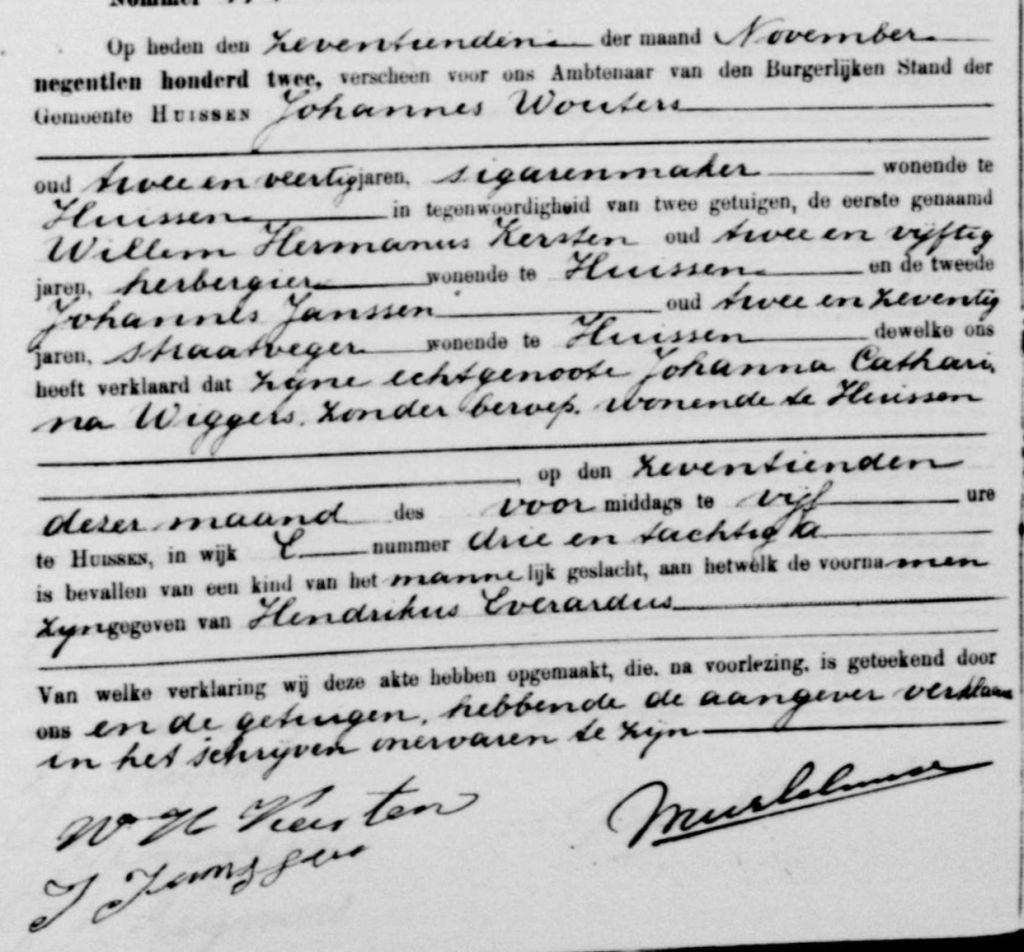 Nommer
Op heden den zeventienden der maand November
negentien honderd twee, verscheen voor ons Ambtenaar van den Burgerlijken Stand der
Gemeente HUISSEN Johannes Wouters
oud twee en veertig jaren, sigarenmaker wonende te
Huissen in tegenwoordigheid van twee getuigen, de eerste genaamd
Willem Hermanus Kersten oud twee en vijftig
jaren, herbergier wonende te Huissen en de tweede
Johannes Janssen oud twee en zeventig
jaren, straatveger wonende te Huissen dewelke ons
heeft verklaard dat zijne echtgenoote Johanna Cathari,
na Wiggers, zonder beroep, wonende te Huissen
, op den zeventienden
dezer maand des voor middags te vijf ure
te HUISSEN, in wijk C nummer drie en tachtig a
is bevallen van een kind van het manne lijk geslacht, aan hetwelk de voorna men
zijn gegeven van Hendrikus Everardus
Van welke verklaring wij deze akte hebben opgemaakt, die, na voorlezing, is geteekend door
ons en de getuigen, hebbende de aangever verklaard
in het schrijven onervaren te zijn
W H Kersten
J Janssen